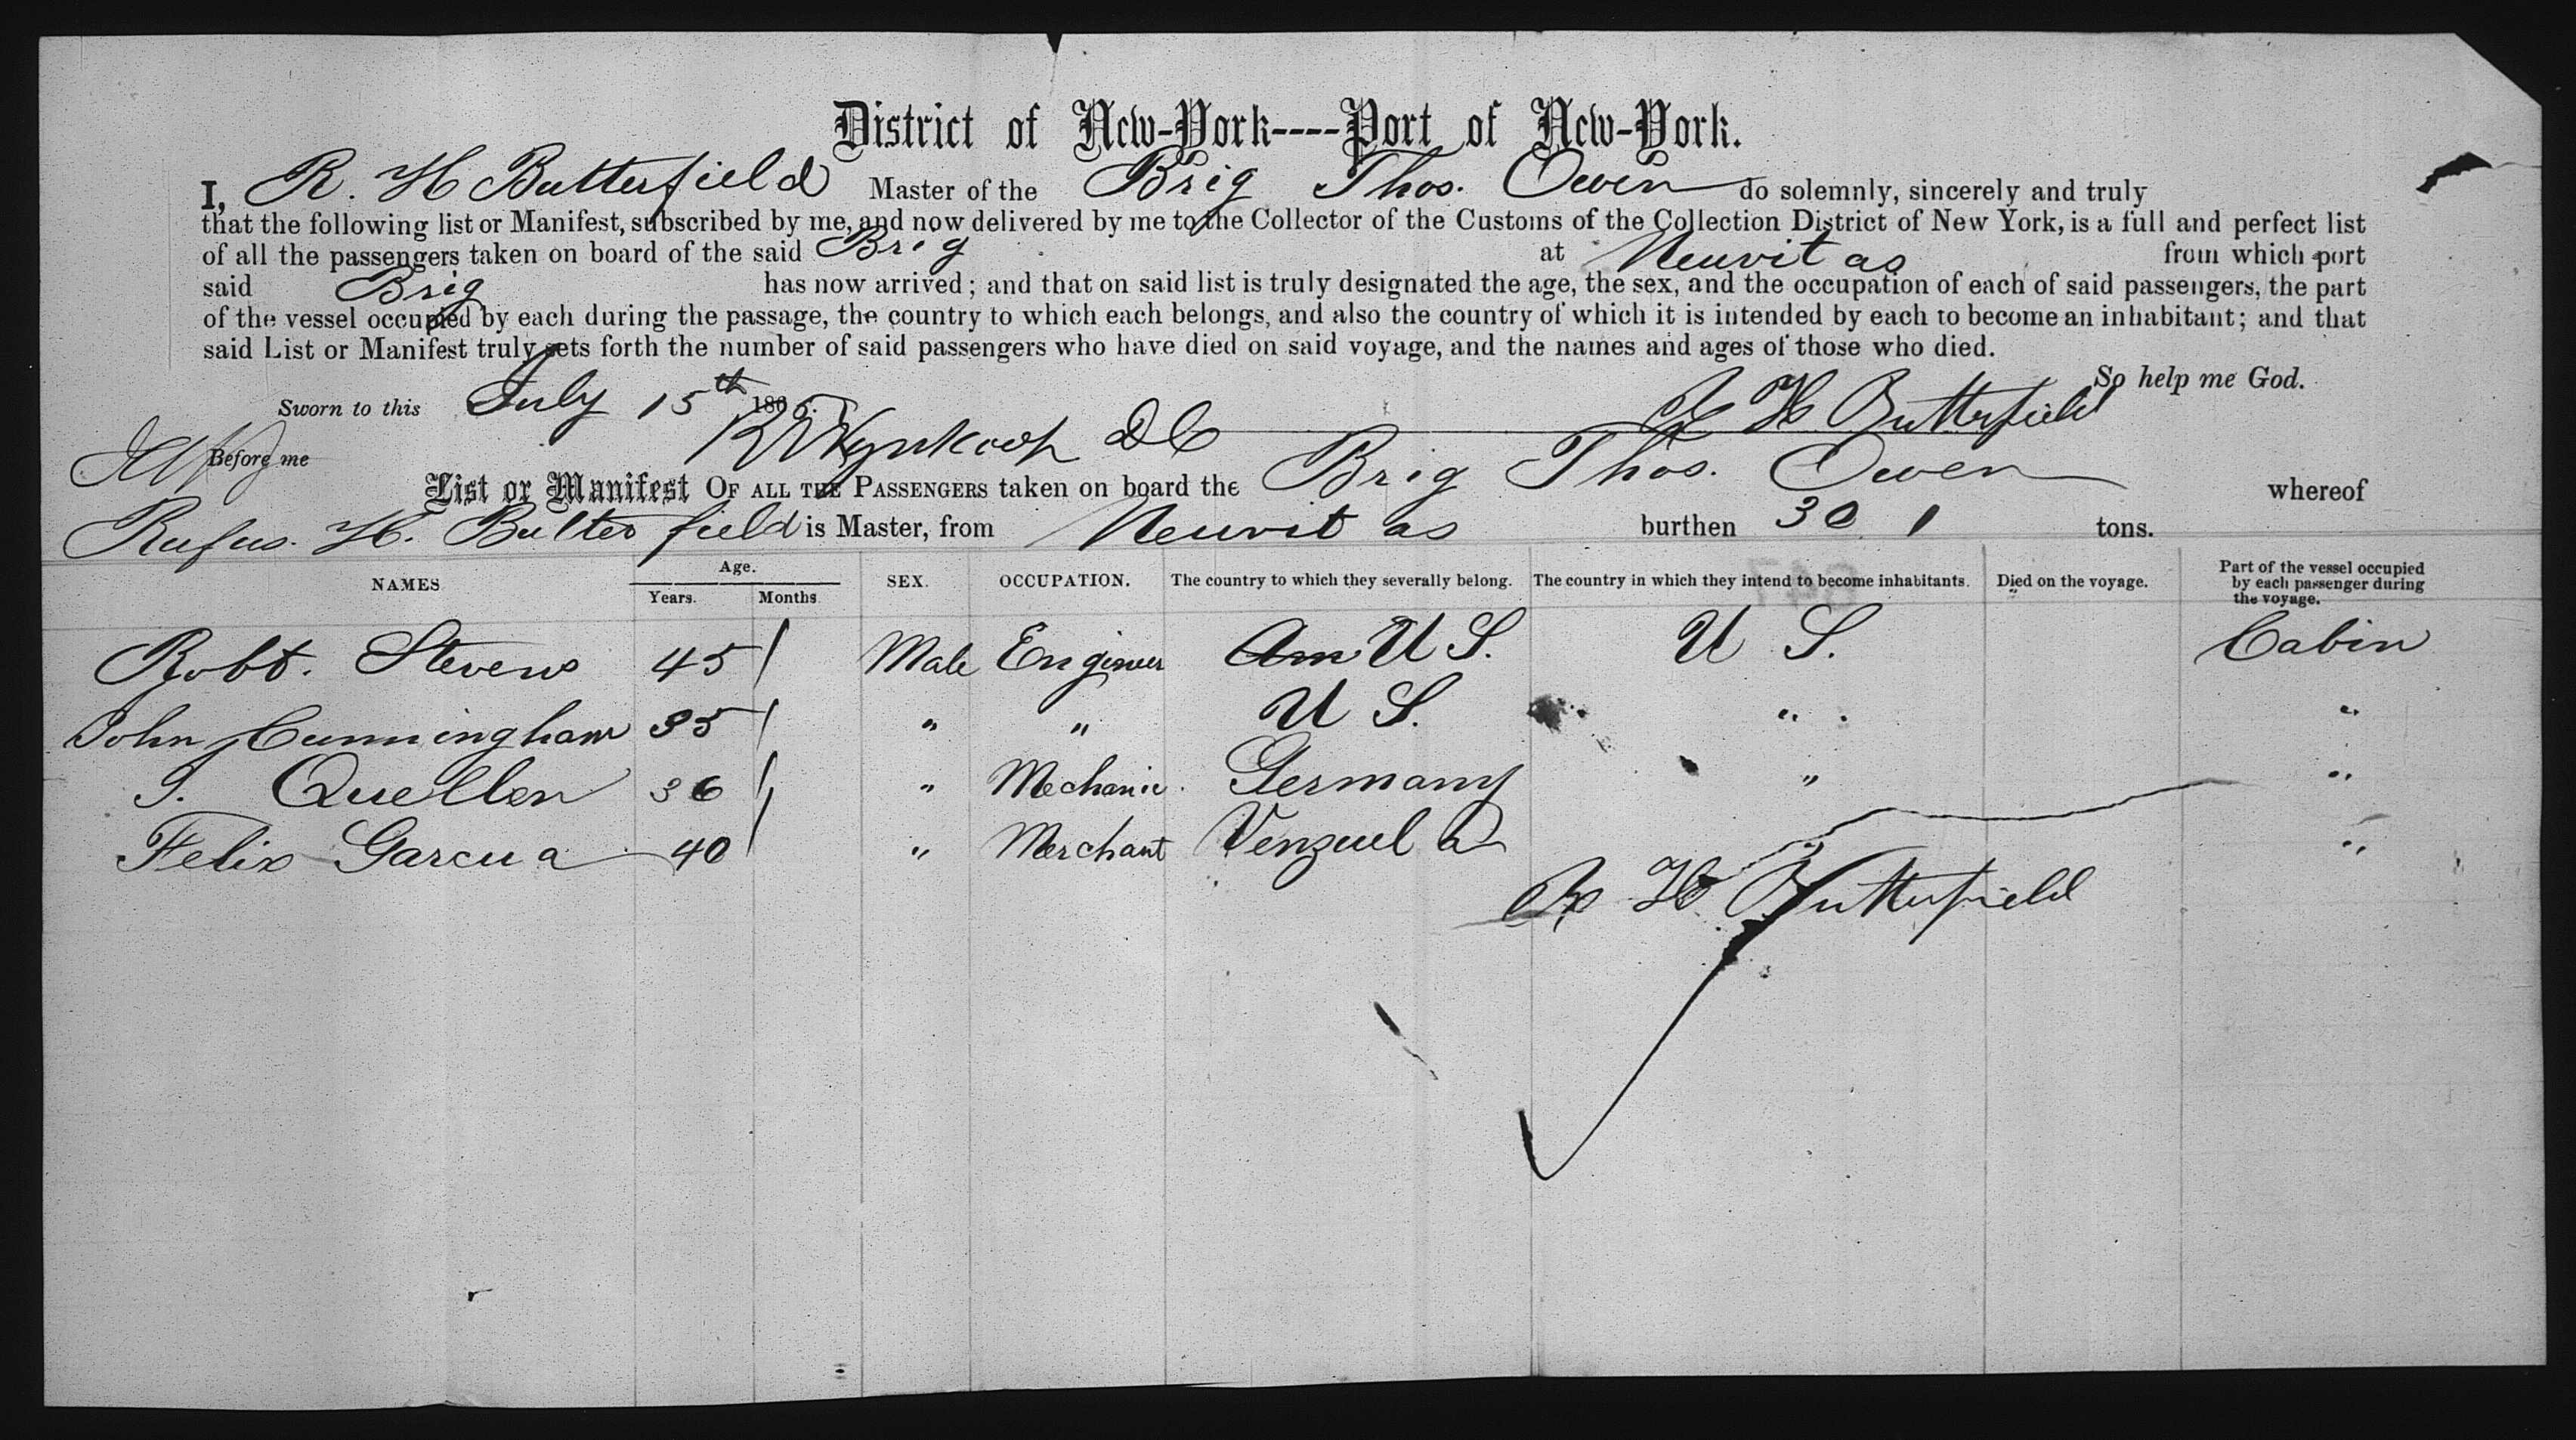 District of New-York----Port of New-York.
I, R. H Butterfield Master of the Brig Thos. Owen do solemnly, sincerely and truly
that the following list or Manifest, subscribed by me, and now delivered by me to the Collector of the Customs of the Collection District of New York, is a full and perfect list
of all the passengers taken on board of the said Brig at Neuvitas from which port
said Brig has now arrived; and that on said list is truly designated the age, the sex, and the occupation of each of said passengers, the part
of the vessel occupied by each during the passage, the country to which each belongs, and also the country of which it is intended by each to become an inhabitant; and that
said List or Manifest truly sets forth the number of said passengers who have died on said voyage, and the names and ages of those who died.
So help me God.
Sworn to this July 15th 186 R H Butterfield
Before me Wynkoop D C
List or Manifest OF ALL THE PASSENGERS taken on board the Brig Thos. Owen whereof
Rufus. H. Butterfield is Master, from Neuvitas burthen 301 tons.
NAMES Age. Years. Months SEX. OCCUPATION. The country to which they severally belong. The country in which they intend to become inhabitants. Died on the voyage. Part of the vessel occupied by each passenger during the voyage.
Robt. Stevens 45 / Male Engineer Am U S. U S. Cabin
John Cunningham 35 / " " U S. " "
Quellen 36 / " Mechanic. Germany " "
Felix Garcua 40 / " Merchant Venzuela "
R H Butterfield